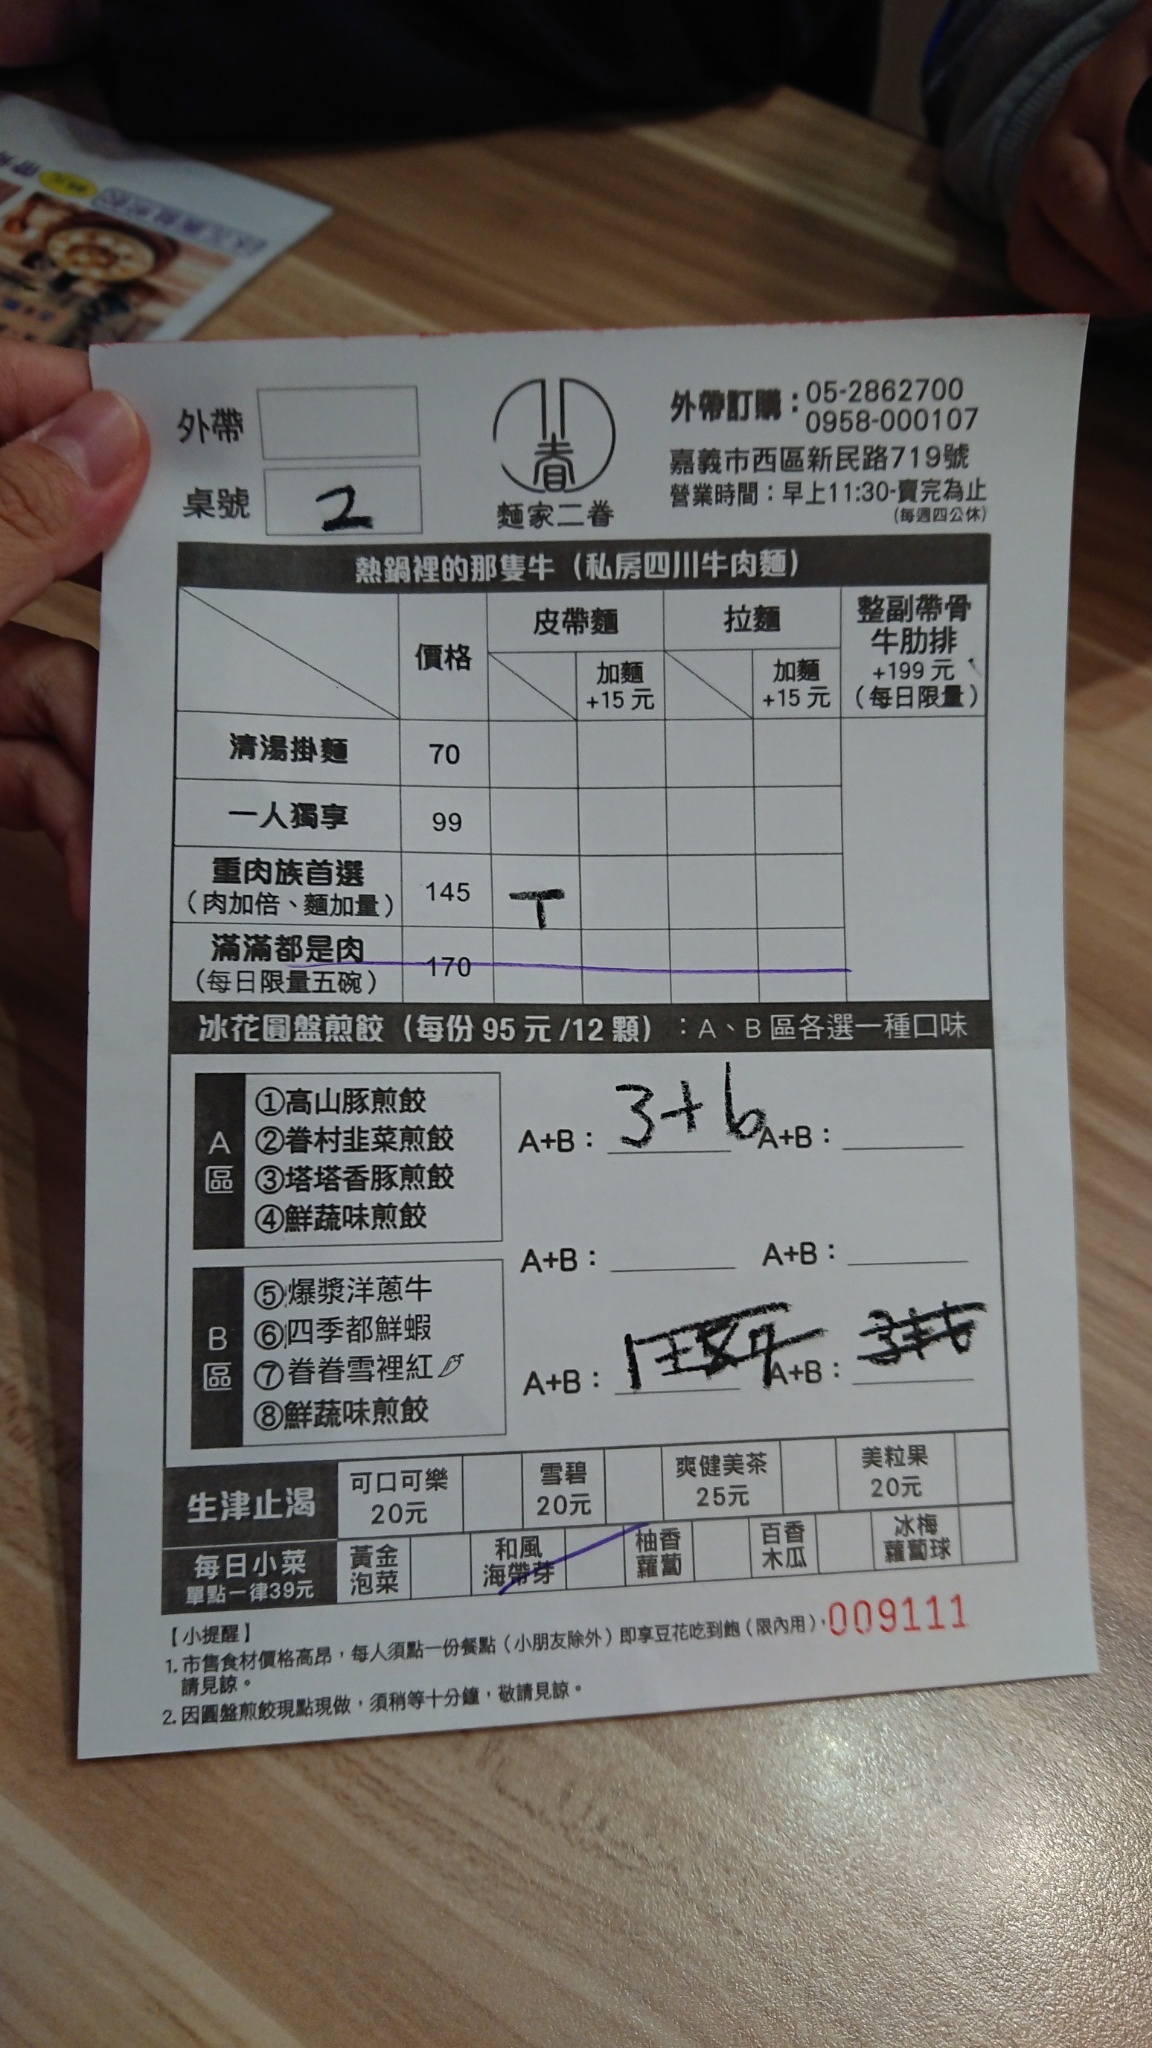 外帶
桌號 2
麵家二眷
外帶訂購：05-2862700
0958-000107
嘉義市西區新民路719號
營業時間：早上11:30-賣完為止
(每週四公休)
熱鍋裡的那隻牛（私房四川牛肉麵）
價格 皮帶麵 拉麵 整副帶骨牛肋排+199元（每日限量）
加麵+15元 加麵+15元
清湯掛麵 70
一人獨享 99
重肉族首選 145 T
（肉加倍、麵加量）
滿滿都是肉 170
（每日限量五碗）
冰花圓盤煎餃（每份95元/12顆）：A、B區各選一種口味
A區
①高山豚煎餃
②眷村韭菜煎餃
③塔塔香豚煎餃
④鮮蔬味煎餃
B區
⑤爆漿洋蔥牛
⑥四季都鮮蝦
⑦眷眷雪裡紅
⑧鮮蔬味煎餃
A+B：3+6 A+B：
A+B： A+B：
A+B： A+B：3+6
生津止渴 可口可樂20元 雪碧20元 爽健美茶25元 美粒果20元
每日小菜 單點一律39元 黃金泡菜 和風海帶芽 柚香蘿蔔 百香木瓜 冰梅蘿蔔球
【小提醒】
1. 市售食材價格高昂，每人須點一份餐點（小朋友除外）即享豆花吃到飽（限內用），
請見諒。
2. 因圓盤煎餃現點現做，須稍等十分鐘，敬請見諒。
009111